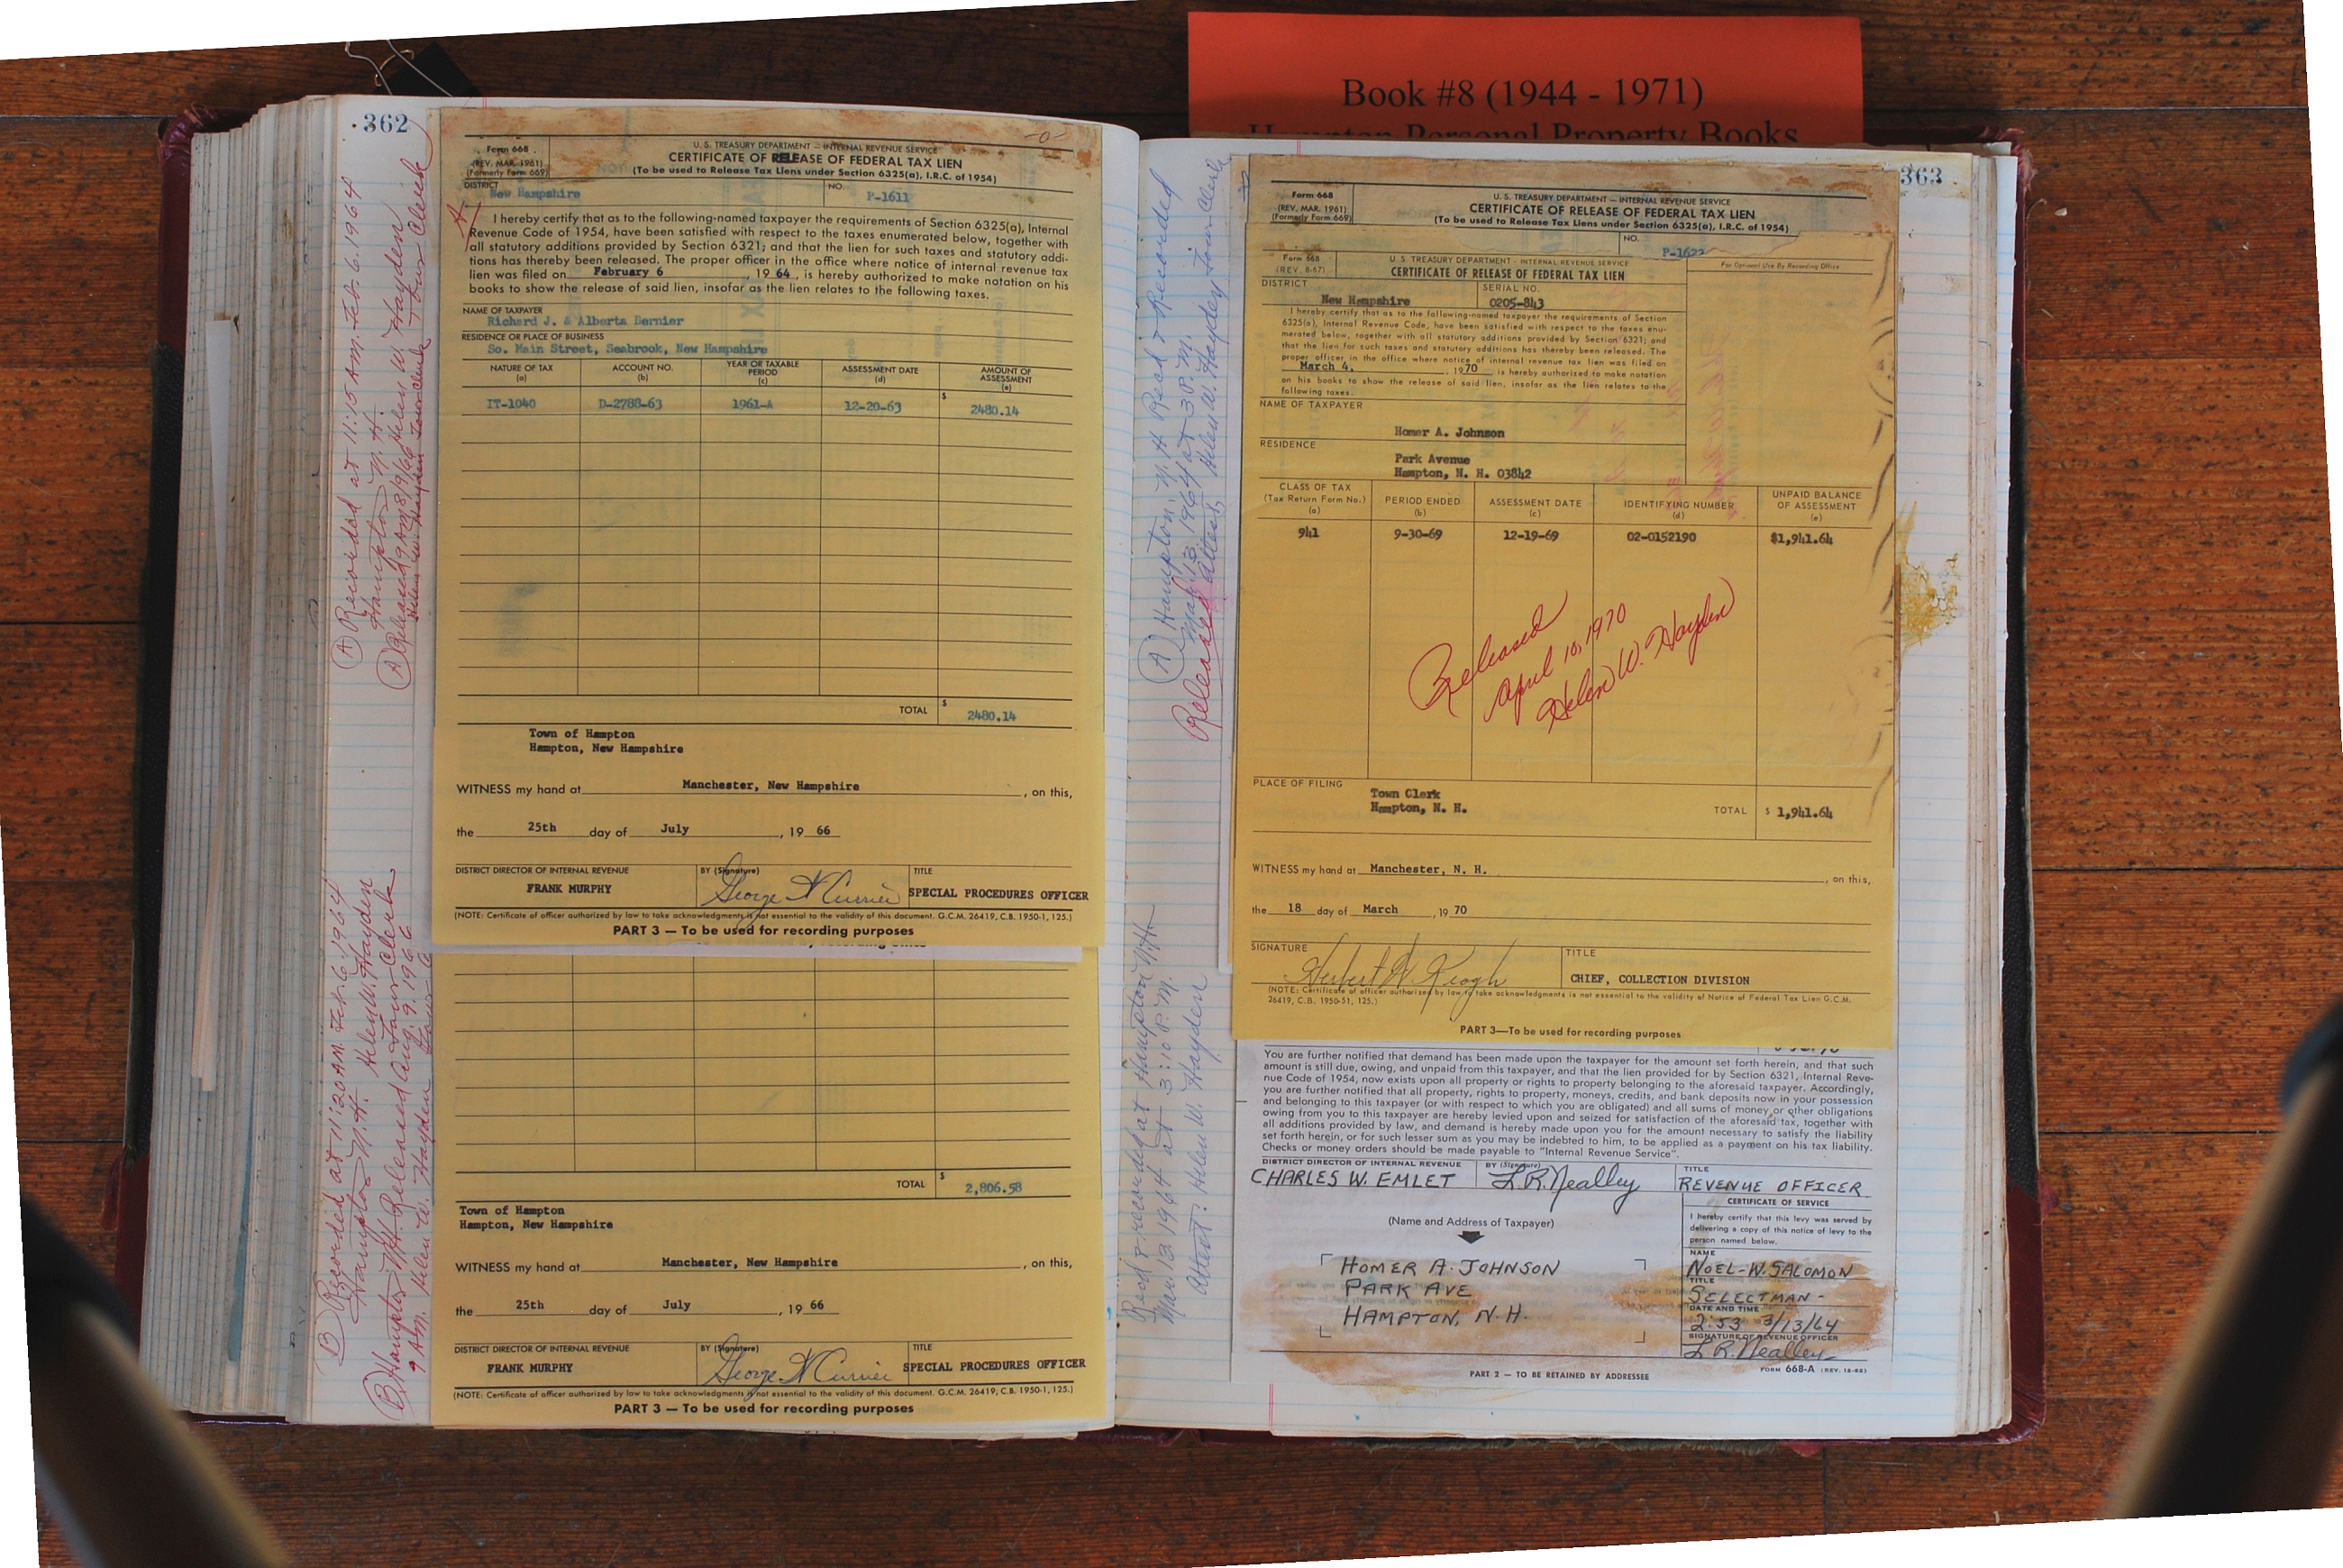 Book #8 (1944 - 1971)
Hampton Personal Property Books
362
Form 668
(REV. MAR. 1961)
(Formerly Form 669)
U. S. TREASURY DEPARTMENT — INTERNAL REVENUE SERVICE
CERTIFICATE OF RELEASE OF FEDERAL TAX LIEN
(To be used to Release Tax Liens under Section 6325(a), I.R.C. of 1954)
-0-
DISTRICT
New Hampshire
NO.
P-1611
A
I hereby certify that as to the following-named taxpayer the requirements of Section 6325(a), Internal
Revenue Code of 1954, have been satisfied with respect to the taxes enumerated below, together with
all statutory additions provided by Section 6321; and that the lien for such taxes and statutory addi-
tions has thereby been released. The proper officer in the office where notice of internal revenue tax
lien was filed on February 6, 1964, is hereby authorized to make notation on his
books to show the release of said lien, insofar as the lien relates to the following taxes.
NAME OF TAXPAYER
Richard J. & Alberta Bernier
RESIDENCE OR PLACE OF BUSINESS
So. Main Street, Seabrook, New Hampshire
NATURE OF TAX (a) ACCOUNT NO. (b) YEAR OR TAXABLE PERIOD (c) ASSESSMENT DATE (d) AMOUNT OF ASSESSMENT (e)
IT-1040 D-2788-63 1961-A 12-20-63 $ 2480.14
TOTAL $ 2480.14
Town of Hampton
Hampton, New Hampshire
WITNESS my hand at Manchester, New Hampshire, on this,
the 25th day of July, 19 66
DISTRICT DIRECTOR OF INTERNAL REVENUE BY (Signature) TITLE
FRANK MURPHY George N Currier SPECIAL PROCEDURES OFFICER
(NOTE: Certificate of officer authorized by law to take acknowledgments is not essential to the validity of this document. G.C.M. 26419, C.B. 1950-1, 125.)
PART 3 — To be used for recording purposes
TOTAL $ 2,806.58
Town of Hampton
Hampton, New Hampshire
WITNESS my hand at Manchester, New Hampshire, on this,
the 25th day of July, 19 66
DISTRICT DIRECTOR OF INTERNAL REVENUE BY (Signature) TITLE
FRANK MURPHY George N Currier SPECIAL PROCEDURES OFFICER
(NOTE: Certificate of officer authorized by law to take acknowledgments is not essential to the validity of this document. G.C.M. 26419, C.B. 1950-1, 125.)
PART 3 — To be used for recording purposes
(A) Recorded at 11:15 A.M. Feb. 6. 1964
Hampton N. H. Helen W. Hayden Town Clerk
(A) Released 9 AM 8/9/66 Helen W. Hayden Town Clerk
(B) Recorded at 11:20 A.M. Feb. 6. 1964
Hampton N. H. Helen W. Hayden
Town Clerk
(B) Hampton N.H. Released Aug. 9. 1966
9 A.M. Helen W. Hayden Town C
363
(A) Hampton, N. H. Rec'd & Recorded
Mar. 13, 1964 at 3 P.M.
Attest, Helen W. Hayden Town Clerk
Released
Rec'd & recorded at Hampton N.H.
Mar. 13 1964 at 3:10 P.M.
Attest: Helen W. Hayden
Form 668
(REV. MAR. 1961)
(Formerly Form 669)
U. S. TREASURY DEPARTMENT — INTERNAL REVENUE SERVICE
CERTIFICATE OF RELEASE OF FEDERAL TAX LIEN
(To be used to Release Tax Liens under Section 6325(a), I.R.C. of 1954)
NO.
P-1622
Form 668
(REV. 8-67)
U. S. TREASURY DEPARTMENT - INTERNAL REVENUE SERVICE
CERTIFICATE OF RELEASE OF FEDERAL TAX LIEN
For Optional Use By Recording Office
DISTRICT
New Hampshire
SERIAL NO.
0205-843
I hereby certify that as to the following-named taxpayer the requirements of Section
6325(a), Internal Revenue Code, have been satisfied with respect to the taxes enu-
merated below, together with all statutory additions provided by Section 6321; and
that the lien for such taxes and statutory additions has thereby been released. The
proper officer in the office where notice of internal revenue tax lien was filed on
March 4, 1970, is hereby authorized to make notation
on his books to show the release of said lien, insofar as the lien relates to the
following taxes.
NAME OF TAXPAYER
Homer A. Johnson
RESIDENCE
Park Avenue
Hampton, N. H. 03842
CLASS OF TAX (Tax Return Form No.) (a) PERIOD ENDED (b) ASSESSMENT DATE (c) IDENTIFYING NUMBER (d) UNPAID BALANCE OF ASSESSMENT (e)
941 9-30-69 12-19-69 02-0152190 $1,941.64
Released
April 10, 1970
Helen W. Hayden
PLACE OF FILING
Town Clerk
Hampton, N. H.
TOTAL $ 1,941.64
WITNESS my hand at Manchester, N. H., on this,
the 18 day of March, 19 70
SIGNATURE TITLE
Herbert W. Keogh CHIEF, COLLECTION DIVISION
(NOTE: Certificate of officer authorized by law to take acknowledgments is not essential to the validity of Notice of Federal Tax Lien G.C.M.
26419, C.B. 1950-51, 125.)
PART 3—To be used for recording purposes
You are further notified that demand has been made upon the taxpayer for the amount set forth herein, and that such
amount is still due, owing, and unpaid from this taxpayer, and that the lien provided for by Section 6321, Internal Reve-
nue Code of 1954, now exists upon all property or rights to property belonging to the aforesaid taxpayer. Accordingly,
you are further notified that all property, rights to property, moneys, credits, and bank deposits now in your possession
and belonging to this taxpayer (or with respect to which you are obligated) and all sums of money or other obligations
owing from you to this taxpayer are hereby levied upon and seized for satisfaction of the aforesaid tax, together with
all additions provided by law, and demand is hereby made upon you for the amount necessary to satisfy the liability
set forth herein, or for such lesser sum as you may be indebted to him, to be applied as a payment on his tax liability.
Checks or money orders should be made payable to "Internal Revenue Service".
DISTRICT DIRECTOR OF INTERNAL REVENUE BY (Signature) TITLE
CHARLES W. EMLET L.R. Nealley REVENUE OFFICER
(Name and Address of Taxpayer)
HOMER A. JOHNSON
PARK AVE
HAMPTON, N.H.
CERTIFICATE OF SERVICE
I hereby certify that this levy was served by
delivering a copy of this notice of levy to the
person named below.
NAME
NOEL-W. SALOMON
TITLE
SELECTMAN-
DATE AND TIME
2:53 3/13/64
SIGNATURE OF REVENUE OFFICER
L R. Nealley
PART 2 — TO BE RETAINED BY ADDRESSEE
FORM 668-A